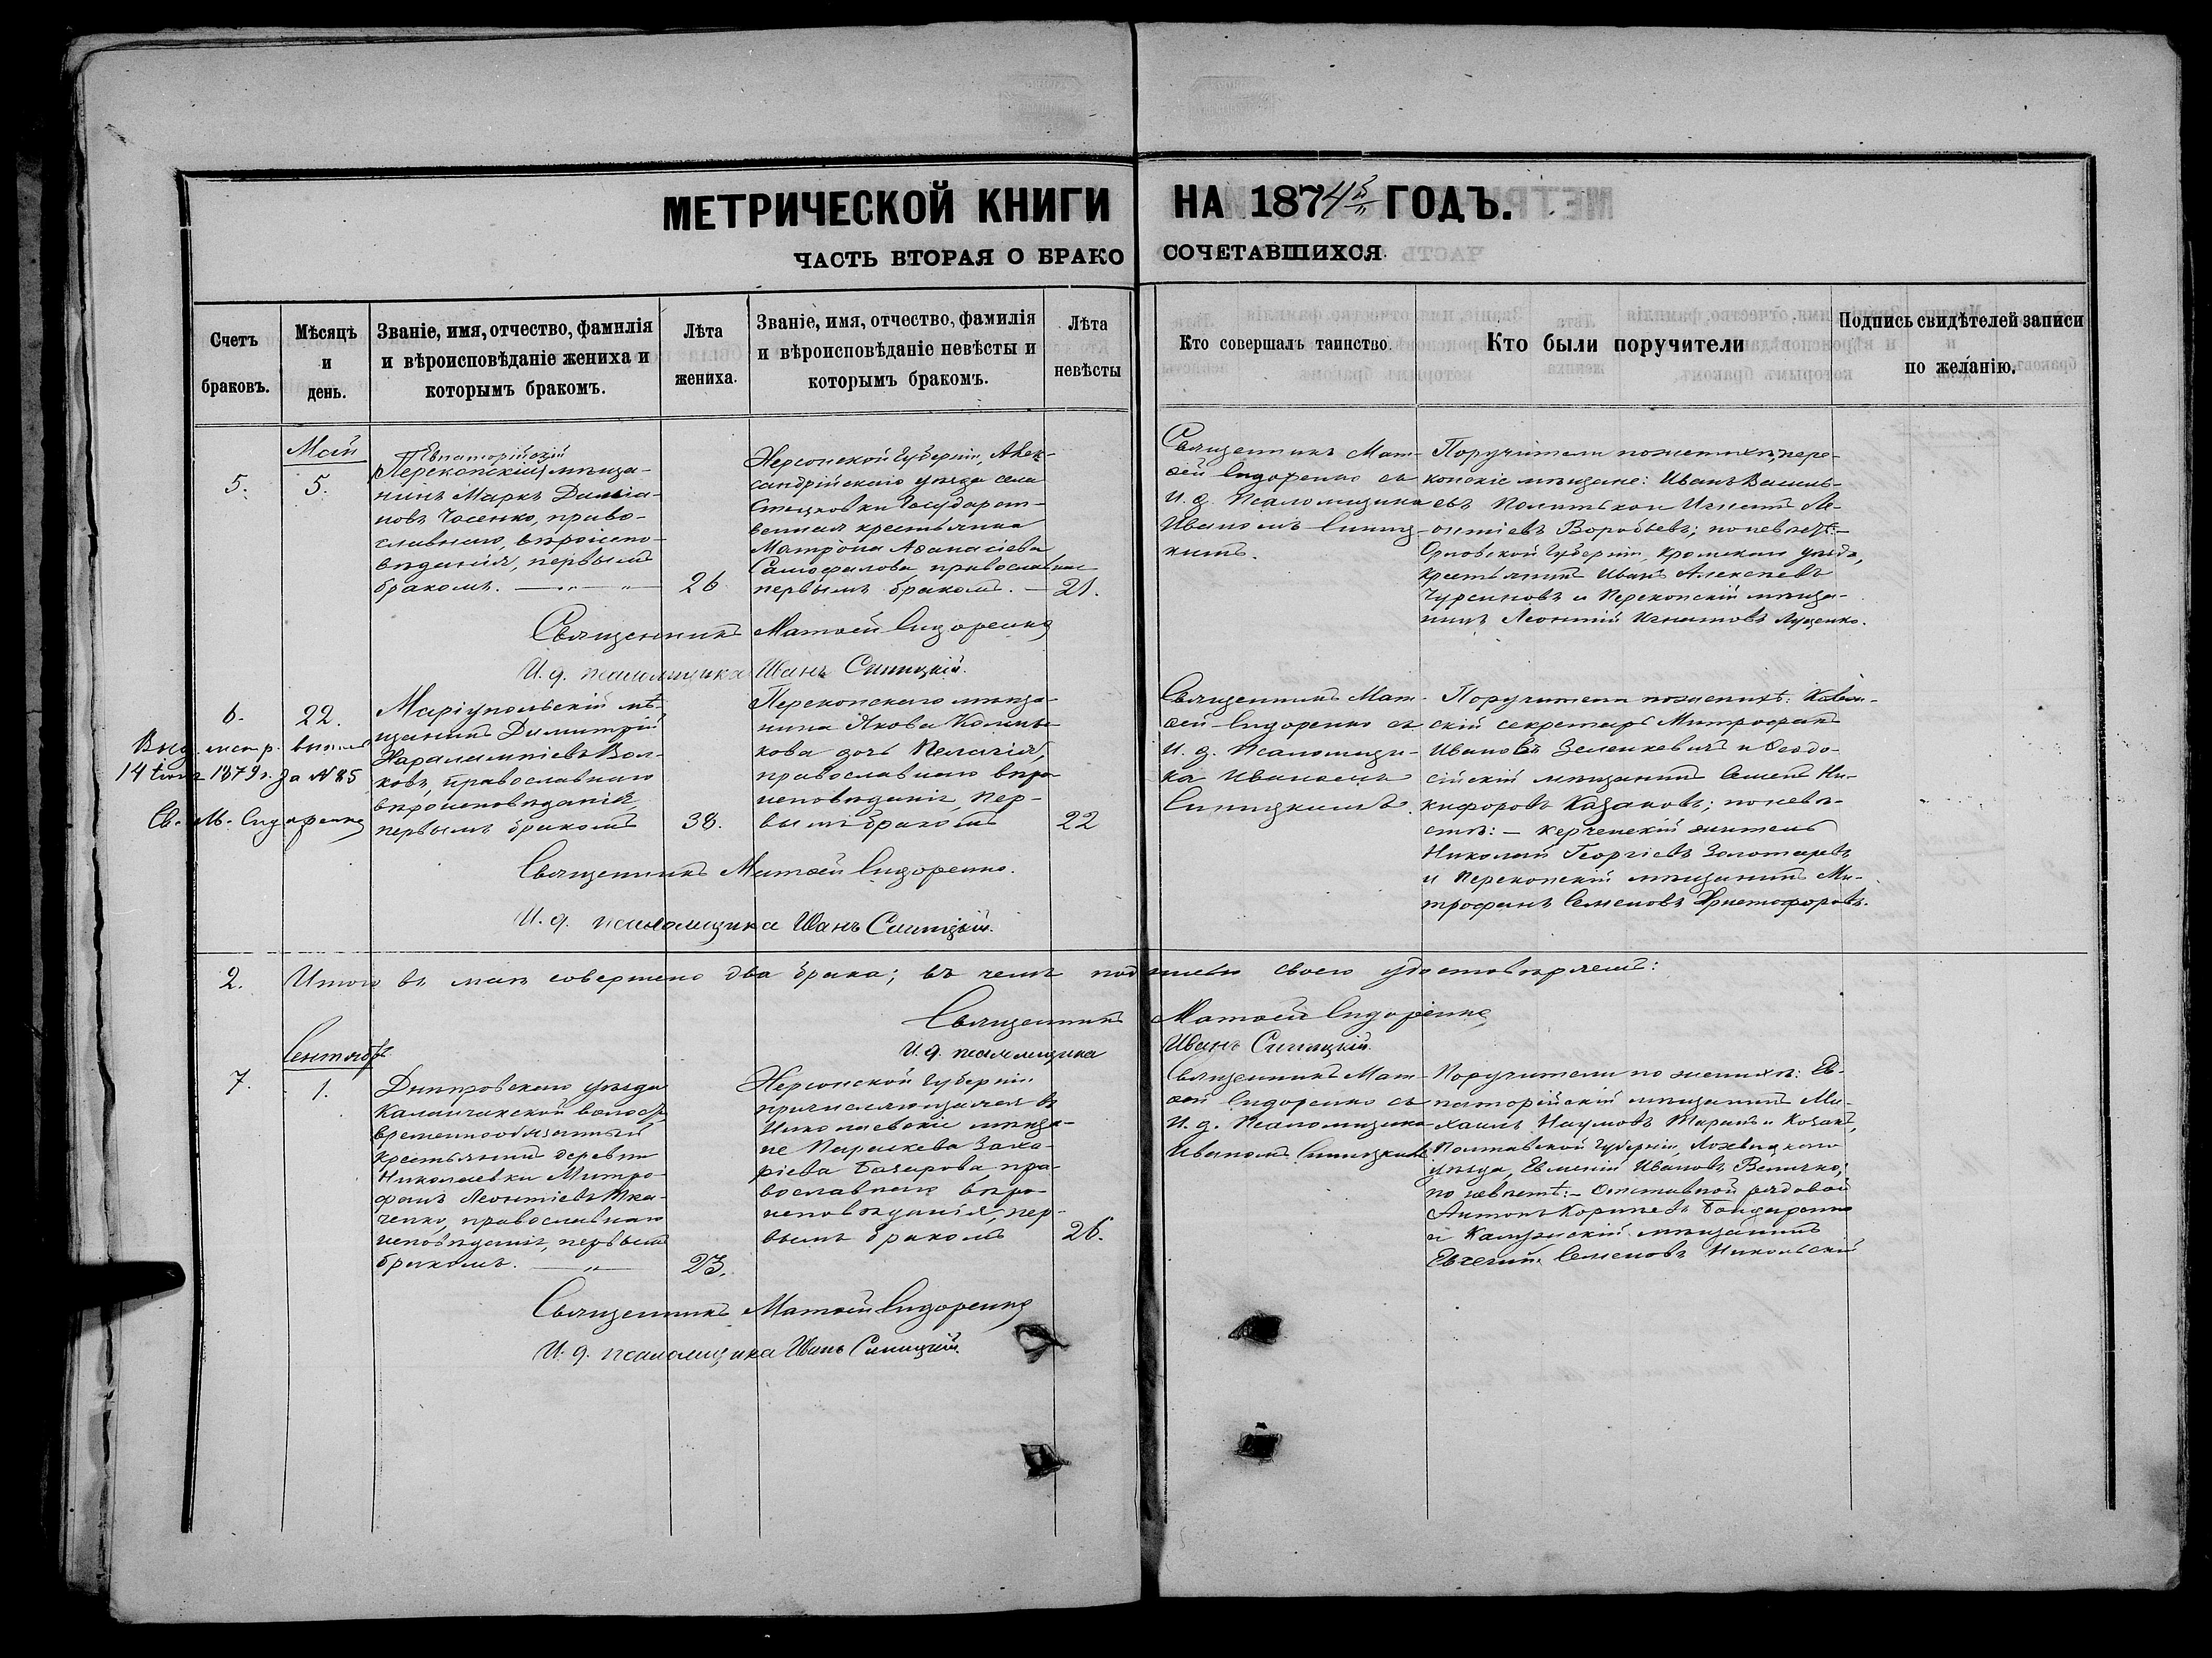 МЕТРИЧЕСКОЙ КНИГИ НА 1874й ГОДЪ.
ЧАСТЬ ВТОРАЯ О БРАКОСОЧЕТАВШИХСЯ.
Счетъ браковъ.
Мѣсяцъ и день.
Званіе, имя, отчество, фамилія
и вѣроисповѣданіе жениха и
которымъ бракомъ.
Лѣта жениха.
Званіе, имя, отчество, фамилія
и вѣроисповѣданіе невѣсты и
которымъ бракомъ.
Лѣта невѣсты
Кто совершалъ таинство.
Кто были поручители
Подпись свидѣтелей записи
по желанію.
5.
Май
5.
Евпаторійскій
Перекопскій мѣща-
нинъ Маркъ
новъ Часенко, право-
славнаго, вѣроиспо-
вѣданія, первымъ
бракомъ.
26
Херсонской Губерніи, Алек-
сандрійскаго уѣзда села
Стецковки Государст-
венная крестьянка
Матрона Аѳанасіева
Самофалова православнаго
первымъ бракомъ.
21.
Священникъ Мат-
ѳей Сидоренко съ
И. д. Псаломщика
Иваномъ Синиц-
кимъ.
Поручители по женихѣ, пере-
копскіе мѣщане: Иванъ Василь-
евъ и Игнатъ Ле-
онтіевъ Воробьевъ; по невѣстѣ:
Орловской Губерніи, Кромскаго уѣзда,
крестьянинъ Иванъ Алексѣевъ
Чурсиновъ и Перекопскій мѣща-
нинъ Леонтій Игнатовъ Луценко.
Священникъ Матѳей Сидоренко
И. д. псаломщика Иванъ Синицкій.
6.
22.
Выд. метр. выпись
14 1879 г. за № 85
Св. М. Сидоренко
Маріупольскій мѣ-
щанинъ Димитрій
Харалампіевъ Вол-
ковъ, православнаго
вѣроисповѣданія,
первымъ бракомъ
38.
Перекопскаго мѣща-
нина Якова
кова дочь Пелагія,
православнаго вѣро-
исповѣданія, пер-
вымъ бракомъ
22
Священникъ Мат-
ѳей Сидоренко съ
И. д. Псаломщи-
ка Иваномъ
Синицкимъ.
Поручители по женихѣ:
скій секретарь Митрофанъ
Ивановъ Зеленкевичъ и Ѳеодо-
сійскій мѣщанинъ Семенъ Ни-
кифоровъ Казаковъ; по невѣ-
стѣ: – Керченскій житель
Николай Георгіевъ Золотаревъ
и Перекопскій мѣщанинъ Ми-
трофанъ Семеновъ Христофоровъ.
Священникъ Матѳей Сидоренко.
И. д. псаломщика Иванъ Синицкій.
2. Итого въ маѣ совершено два брака; въ чемъ подписью своею удостовѣряемъ:
Священникъ Матѳей Сидоренко
И. д. псаломщика Иванъ Синицкій.
7.
Сентябрь
1.
Днѣпровскаго уѣзда
Каланчакской волости
временнообязанный
крестьянинъ деревни
Николаевки Митро-
фанъ Леонтіевъ Тка-
ченко, православнаго
исповѣданія, первымъ
бракомъ.
23.
Херсонской Губерніи
причисляющаяся въ
Николаевскіе мѣща-
не Параскева Заха-
ріева Базарова пра-
вославнаго вѣро-
исповѣданія, пер-
вымъ бракомъ
26.
Священникъ Мат-
ѳей Сидоренко съ
И. д. Псаломщика
Иваномъ Синицкимъ
Поручители по женихѣ: Ев-
паторійскій мѣщанинъ Ми-
хаилъ Наумовъ и Козакъ,
Полтавской Губерніи, Лохвицкаго
уѣзда, Евменій Ивановъ Величко;
по невѣстѣ: – Отставной рядовой
Антонъ Бондаренко
и Калужскій мѣщанинъ
Евгеній Семеновъ Никольскій
Священникъ Матѳей Сидоренко
И. д. псаломщика Иванъ Синицкій.